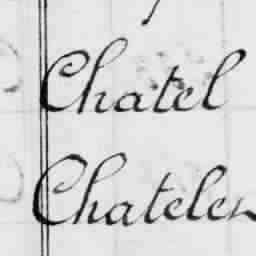 Chatel
Chatelen